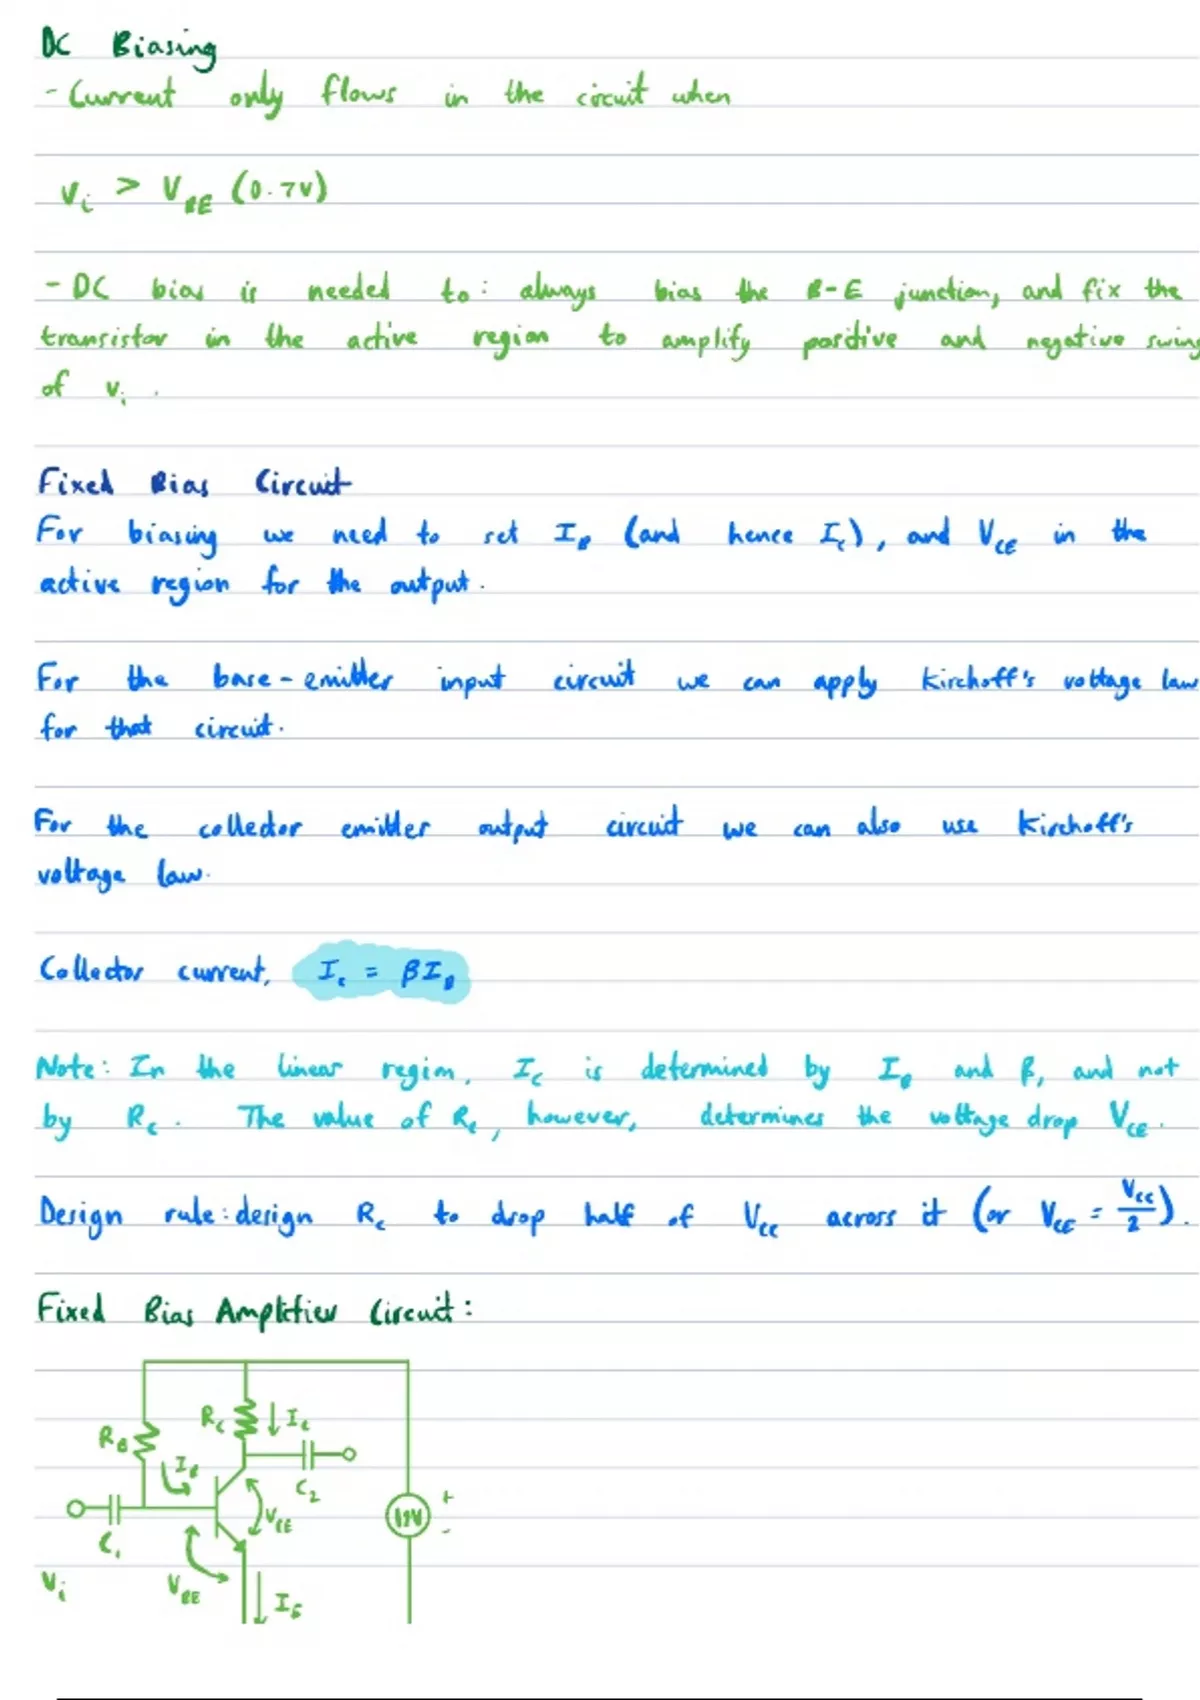 DC Biasing
- Current only flows in the circuit when
Vi > VBE (0.7V)
- DC bias is needed to: always bias the B-E junction, and fix the
transistor in the active region to amplify positive and negative swing
of Vi.
Fixed Bias Circuit
For biasing we need to set IB (and hence Ic), and VCE in the
active region for the output.
For the base-emitter input circuit we can apply Kirchoff's voltage law
for that circuit.
For the collector emitter output circuit we can also use Kirchoff's
voltage law.
Collector current, Ic = βIB
Note: In the linear region, Ic is determined by IB and β, and not
by Rc. The value of Rc, however, determines the voltage drop VCE.
Design rule: design Rc to drop half of Vcc across it (or VCE = Vcc/2).
Fixed Bias Amplifier Circuit:
Rc Ic
RB
IB
C2
VCE
12V
+
-
C1
Vi
VBE
IE